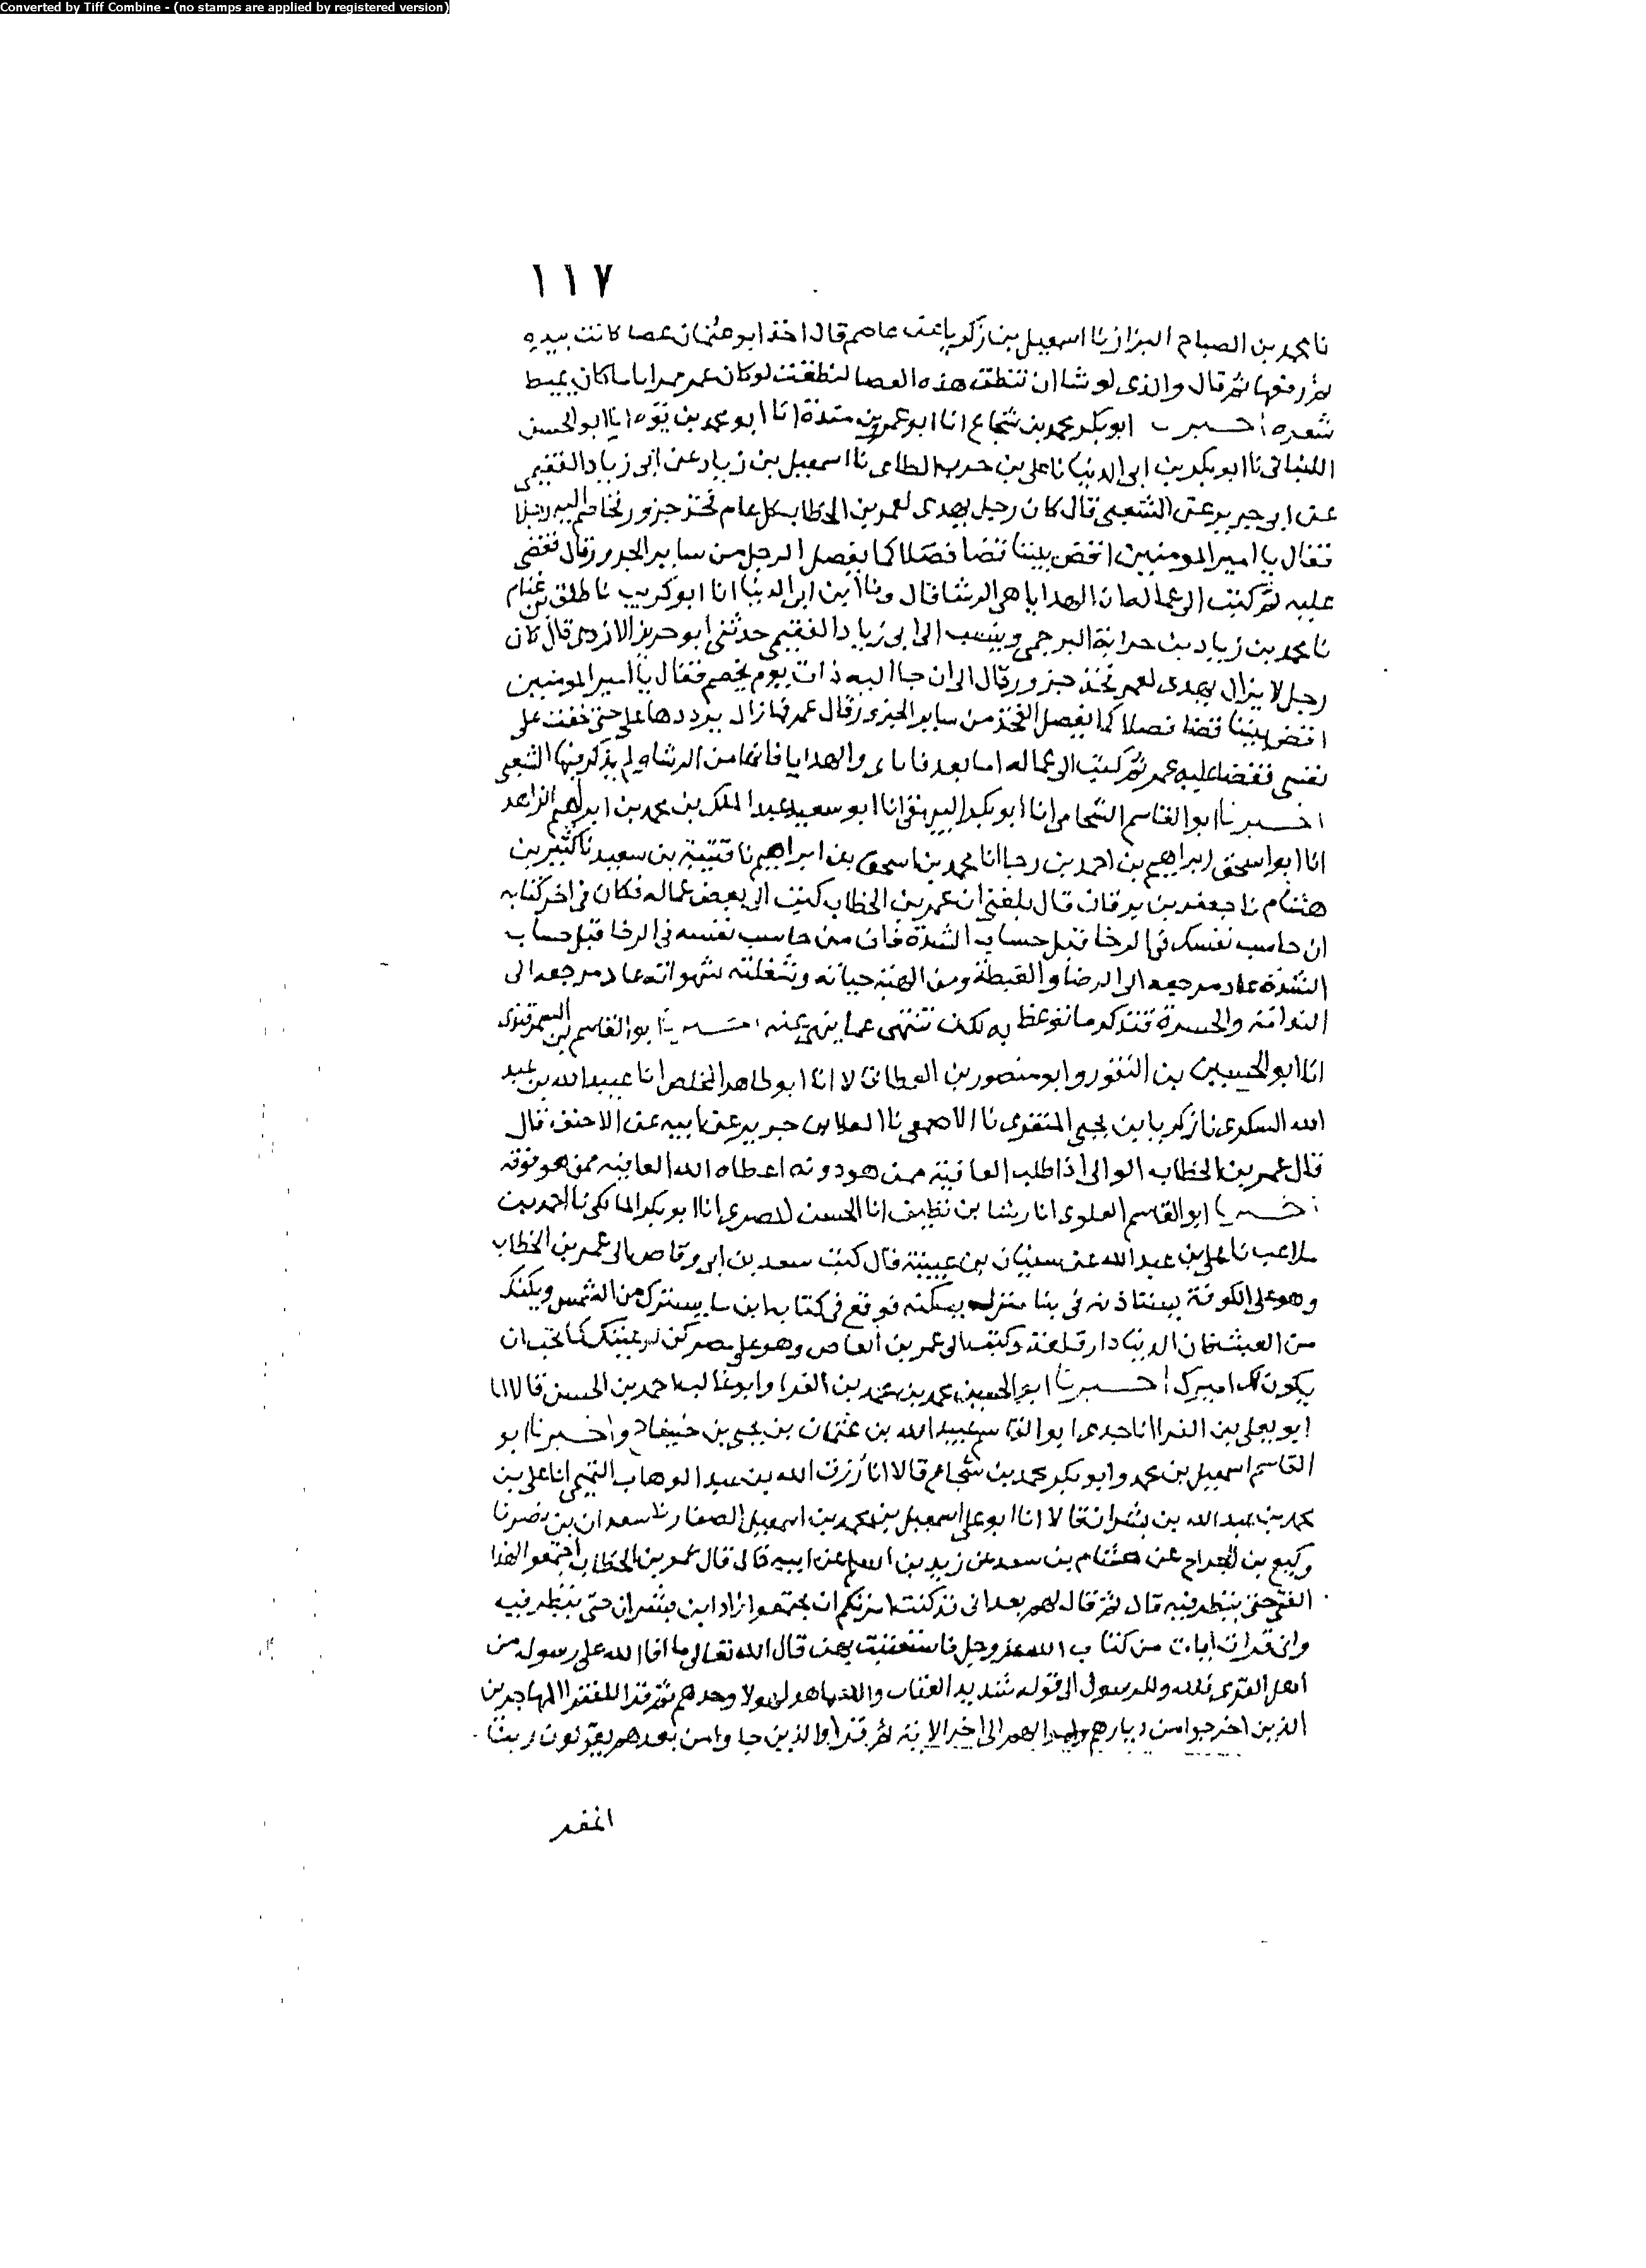 Converted by Tiff Combine - (no stamps are applied by registered version)
١١٧
نا محمد بن الصباح البزاز نا اسمعيل بن زكريا عن عاصم قال اخذ ابو عثمان عصا كانت بيده
ثم رفعها ثم قال والذى لو شا ان تنطق هذه العصا لنطقت لو كان عمر ميزانا ما كان يميط
شعره اخبرنا ابو بكر محمد بن شجاع انا ابو عمرو بن مندة انا ابو محمد بن يوه انا ابو الحسن
اللنبانى نا ابو بكر بن ابى الدنيا نا على بن حرب الطاى نا اسمعيل بن زياد عن ابى زياد الفقيمى
عن ابى جرير عن الشعبى قال كان رجل يهدى لعمر بن الخطاب كل عام فخذ جزور فخاصم اليه رجلا
فقال يا امير المومنين اقض بيننا قضا فصلا كما يفصل الرجل من ساير الجزور قال فقضى
عليه ثم كتب الى عماله ان الهدايا هى الرشا قال ونا ابن ابى الدنيا انا ابو كريب نا طلق بن غنام
نا محمد بن زياد بن حزابة البرجمى وينسب الى ابى زياد الفقيمى حدثنى ابو حريز الازدى قال كان
رجل لا يزال يهدى لعمر فخذ جزور قال الى ان جا اليه ذات يوم بخصم فقال يا امير المومنين
اقض بيننا قضا فصلا كما يفصل الفخذ من ساير الجزور قال عمر فما زال يرددها على حتى خفت على
نفسى فقضا عليه عمر ثم كتب الى عماله اما بعد فاياى والهدايا فانها من الرشا ولم يذكر فيها الشعبى
اخبرنا ابو القاسم الشحامى انا ابو بكر البيهقى انا ابو سعيد عبد الملك بن محمد بن ابراهيم الزاهد
انا ابو اسحق ابراهيم بن احمد بن رجا انا محمد بن اسحق بن ابراهيم نا قتيبة بن سعيد نا كثير بن
هشام نا جعفر بن برقان قال بلغنى ان عمر بن الخطاب كتب الى بعض عماله فكان فى اخر كتابه
ان حاسب نفسك فى الرخا قبل حساب الشدة فان من حاسب نفسه فى الرخا قبل حساب
الشدة عاد مرجعه الى الرضا والغبطة ومن الهته حياته وشغلته شهواته عاد مرجعه الى
الندامة والحسرة فتذكر ما توعظ به لكى تنتهى عما ينهى عنه اخبرنا ابو القاسم بن السمرقندى
انا ابو الحسين بن النقور وابو منصور بن العطار قالا انا ابو طاهر المخلص انا عبيد الله بن عبد
الله السكرى نا زكريا بن يحيى المنقرى نا الاصمعى نا العلا بن جرير عن ابيه عن الاحنف قال
قال عمر بن الخطاب الوالى اذا طلب العافية ممن هو دونه اعطاه الله العافيه ممن هو فوقه
اخبرنا ابو القاسم العلوى انا رشا بن نظيف انا الحسن المصرى انا ابو بكر المالكى نا احمد بن
ملاعب نا على بن عبد الله عن سفيان بن عيينة قال كتب سعد بن ابى وقاص الى عمر بن الخطاب
وهو على الكوفة يستاذنه فى بنا منزله يسكنه فوقع فى كتابه ابن ما يسترك من الشمس ويكنك
من الغيث فان الدنيا دار قلعة وكتب الى عمرو بن العاص وهو على مصر كن لرعيتك كما تحب ان
يكون لك اميرك اخبرنا ابو الحسين محمد بن محمد بن الفرا وابو غالب احمد بن الحسن قالا انا
ابو يعلى بن الفرا انا جدى ابو القاسم عبيد الله بن عثمان بن يحيى بن جنيقا ح واخبرنا ابو
القاسم اسمعيل بن محمد وابو بكر محمد بن شجاع قالا انا رزق الله بن عبد الوهاب التميمى انا على بن
محمد بن عبد الله بن بشران قالا انا ابو على اسمعيل بن محمد بن اسمعيل الصفار نا سعدان بن نصر نا
وكيع بن الجراح عن هشام بن سعد عن زيد بن اسلم عن ابيه قال قال عمر بن الخطاب اجتمعوا لهذا
الفى حتى ننظر فيه قال ثم قال لهم بعد انى قد كنت امرتكم ان تجتمعوا زاد ابن بشران حتى ننظر فيه
وانى قرات ايات من كتاب الله عز وجل فاستغنيت بهن قال الله تعالى ما افا الله على رسوله من
اهل القرى فلله وللرسول الى قوله شديد العقاب والله ما هو لهولا وحدهم ثم قرا للفقرا المهاجرين
الذين اخرجوا من ديارهم واموالهم الى اخر الاية ثم قرا والذين جاوا من بعدهم يقولون ربنا
اغفر